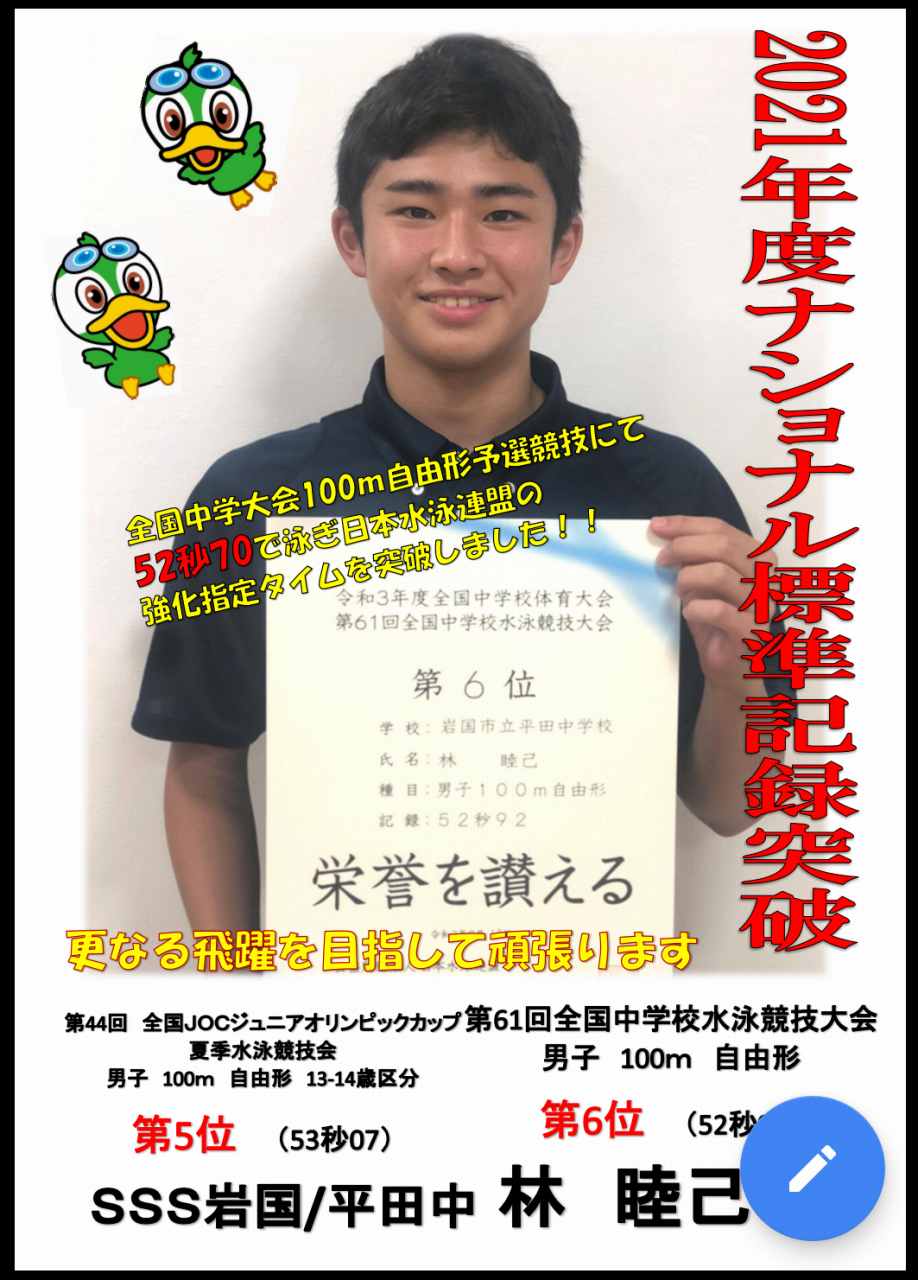 2021年度ナショナル標準記録突破
全国中学大会100m自由形予選競技にて
52秒70で泳ぎ日本水泳連盟の
強化指定タイムを突破しました！！
令和3年度全国中学校体育大会
第61回全国中学校水泳競技大会
第 6 位
学 校：岩国市立平田中学校
氏 名：林 睦己
種 目：男子100m自由形
記 録：52秒92
栄誉を讃える
更なる飛躍を目指して頑張ります
第44回 全国JOCジュニアオリンピックカップ
夏季水泳競技会
男子 100m 自由形 13-14歳区分
第5位 （53秒07）
第61回全国中学校水泳競技大会
男子 100m 自由形
第6位 （52秒
SSS岩国/平田中 林 睦己